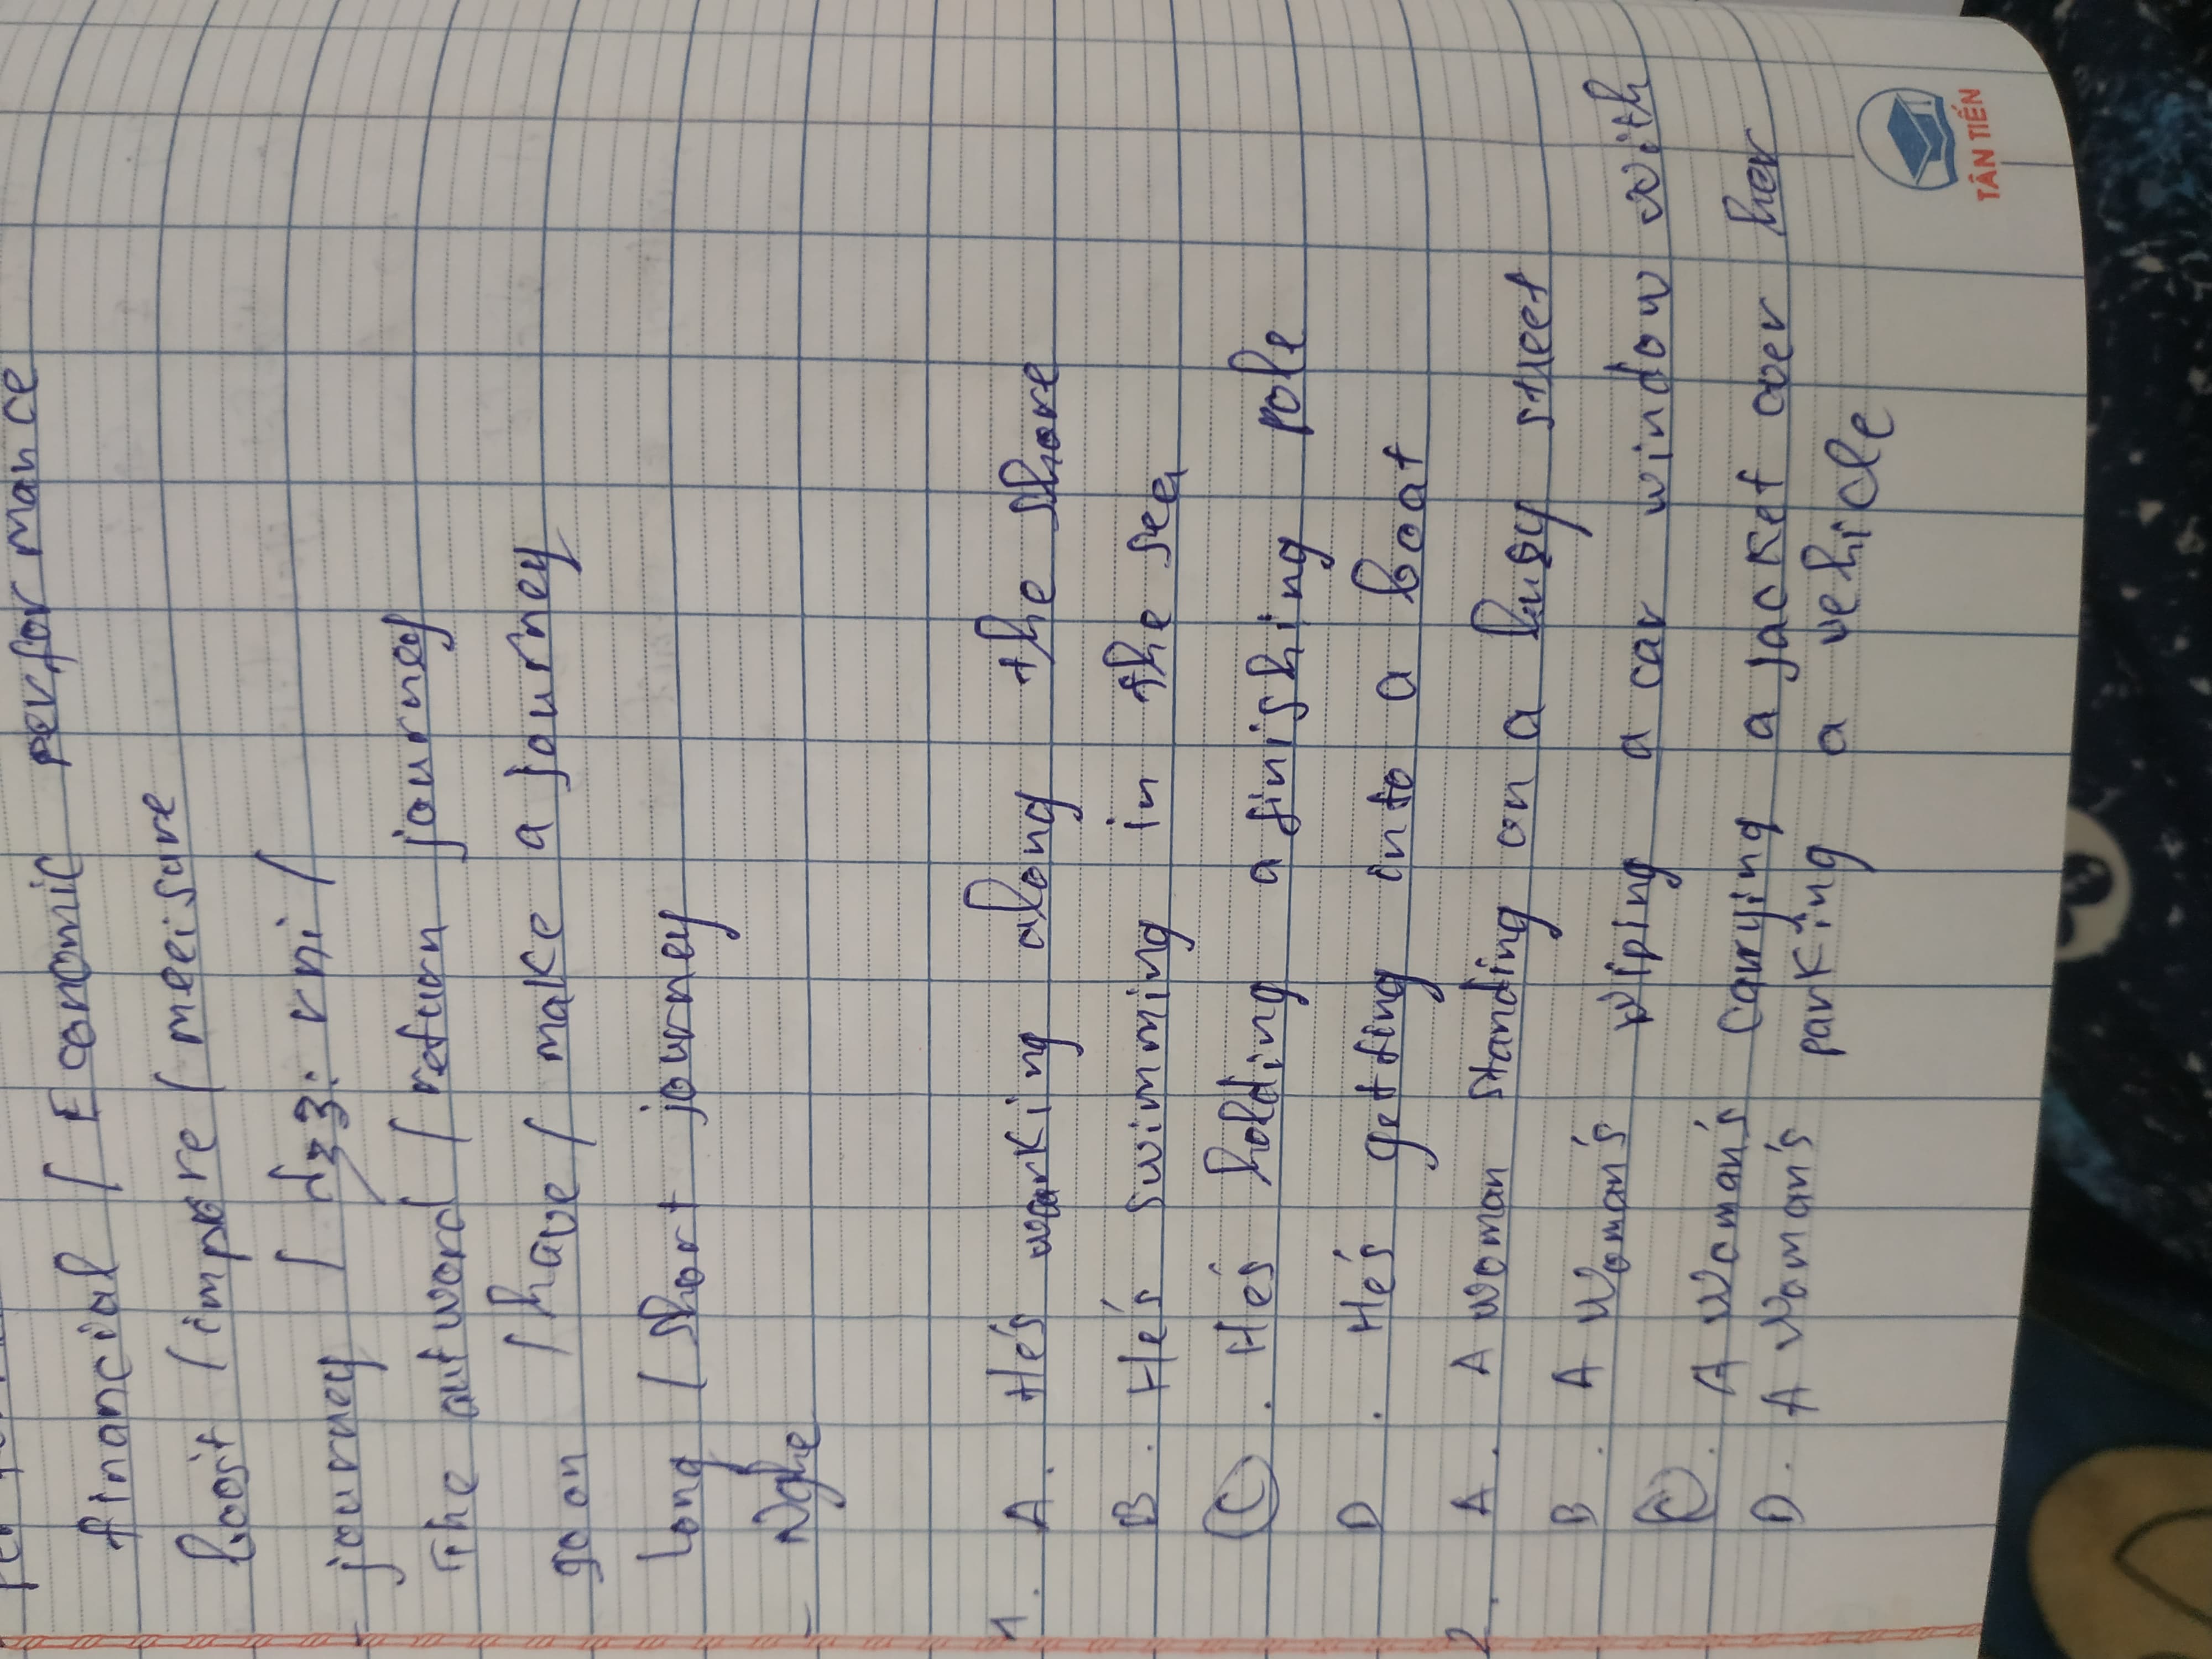 financial / Economic performance
boost / impore / meeisure
- journey / dʒɜ: rni /
The autword / return journey
go on / have / make a journey
Long / Short journey
- Nghe
1. A. He's warking along the shore
B. He's swimming in the sea
C. He's holding a finishing pole
D. He's getting into a boat
2. A. A woman standing on a busy street
B. A Woman's wiping a car window with
C. A Woman's carrying a jacket over her
D. A Woman's parking a vehicle
TÂN TIẾN